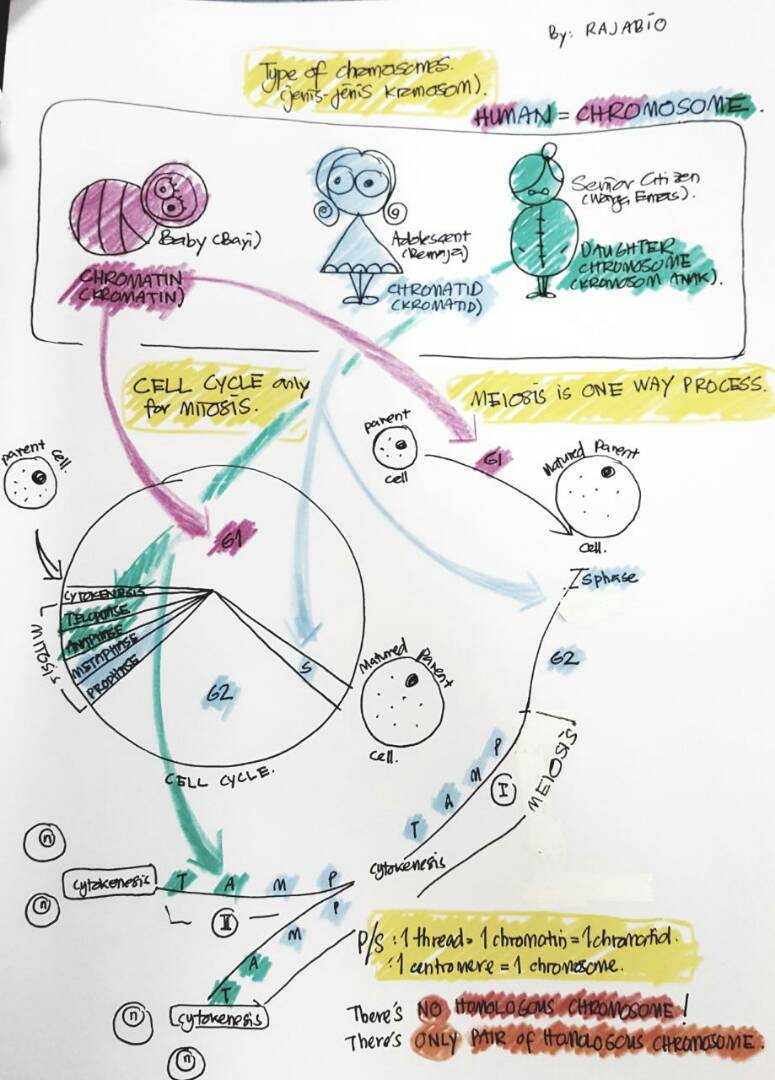 By: RAJABIO
Type of chromosomes.
(jenis-jenis kromosom).
HUMAN = CHROMOSOME.
Baby (Bayi)
CHROMATIN
(KROMATIN)
Adolescent
(Remaja)
CHROMATID
(KROMATID)
Senior Citizen
(Warga Emas).
DAUGHTER
CHROMOSOME
(KROMOSOM ANAK).
CELL CYCLE only
for MITOSIS.
MEIOSIS is ONE WAY PROCESS.
parent cell.
G1
CYTOKENESIS
TELOPHASE
ANAPHASE
METAPHASE
PROPHASE
MITOSIS
G2
S
Matured Parent
cell.
CELL CYCLE.
parent
cell
G1
Matured Parent
cell.
S phase
G2
P
M
A
T
I
MEIOSIS
cytokenesis
n
n
cytokenesis
T A M P
II
P
M
A
T
cytokenesis
n
n
P/S : 1 thread = 1 chromatin = 1 chromatid.
: 1 centromere = 1 chromosome.
There's NO HOMOLOGOUS CHROMOSOME!
There's ONLY PAIR of HOMOLOGOUS CHROMOSOME.